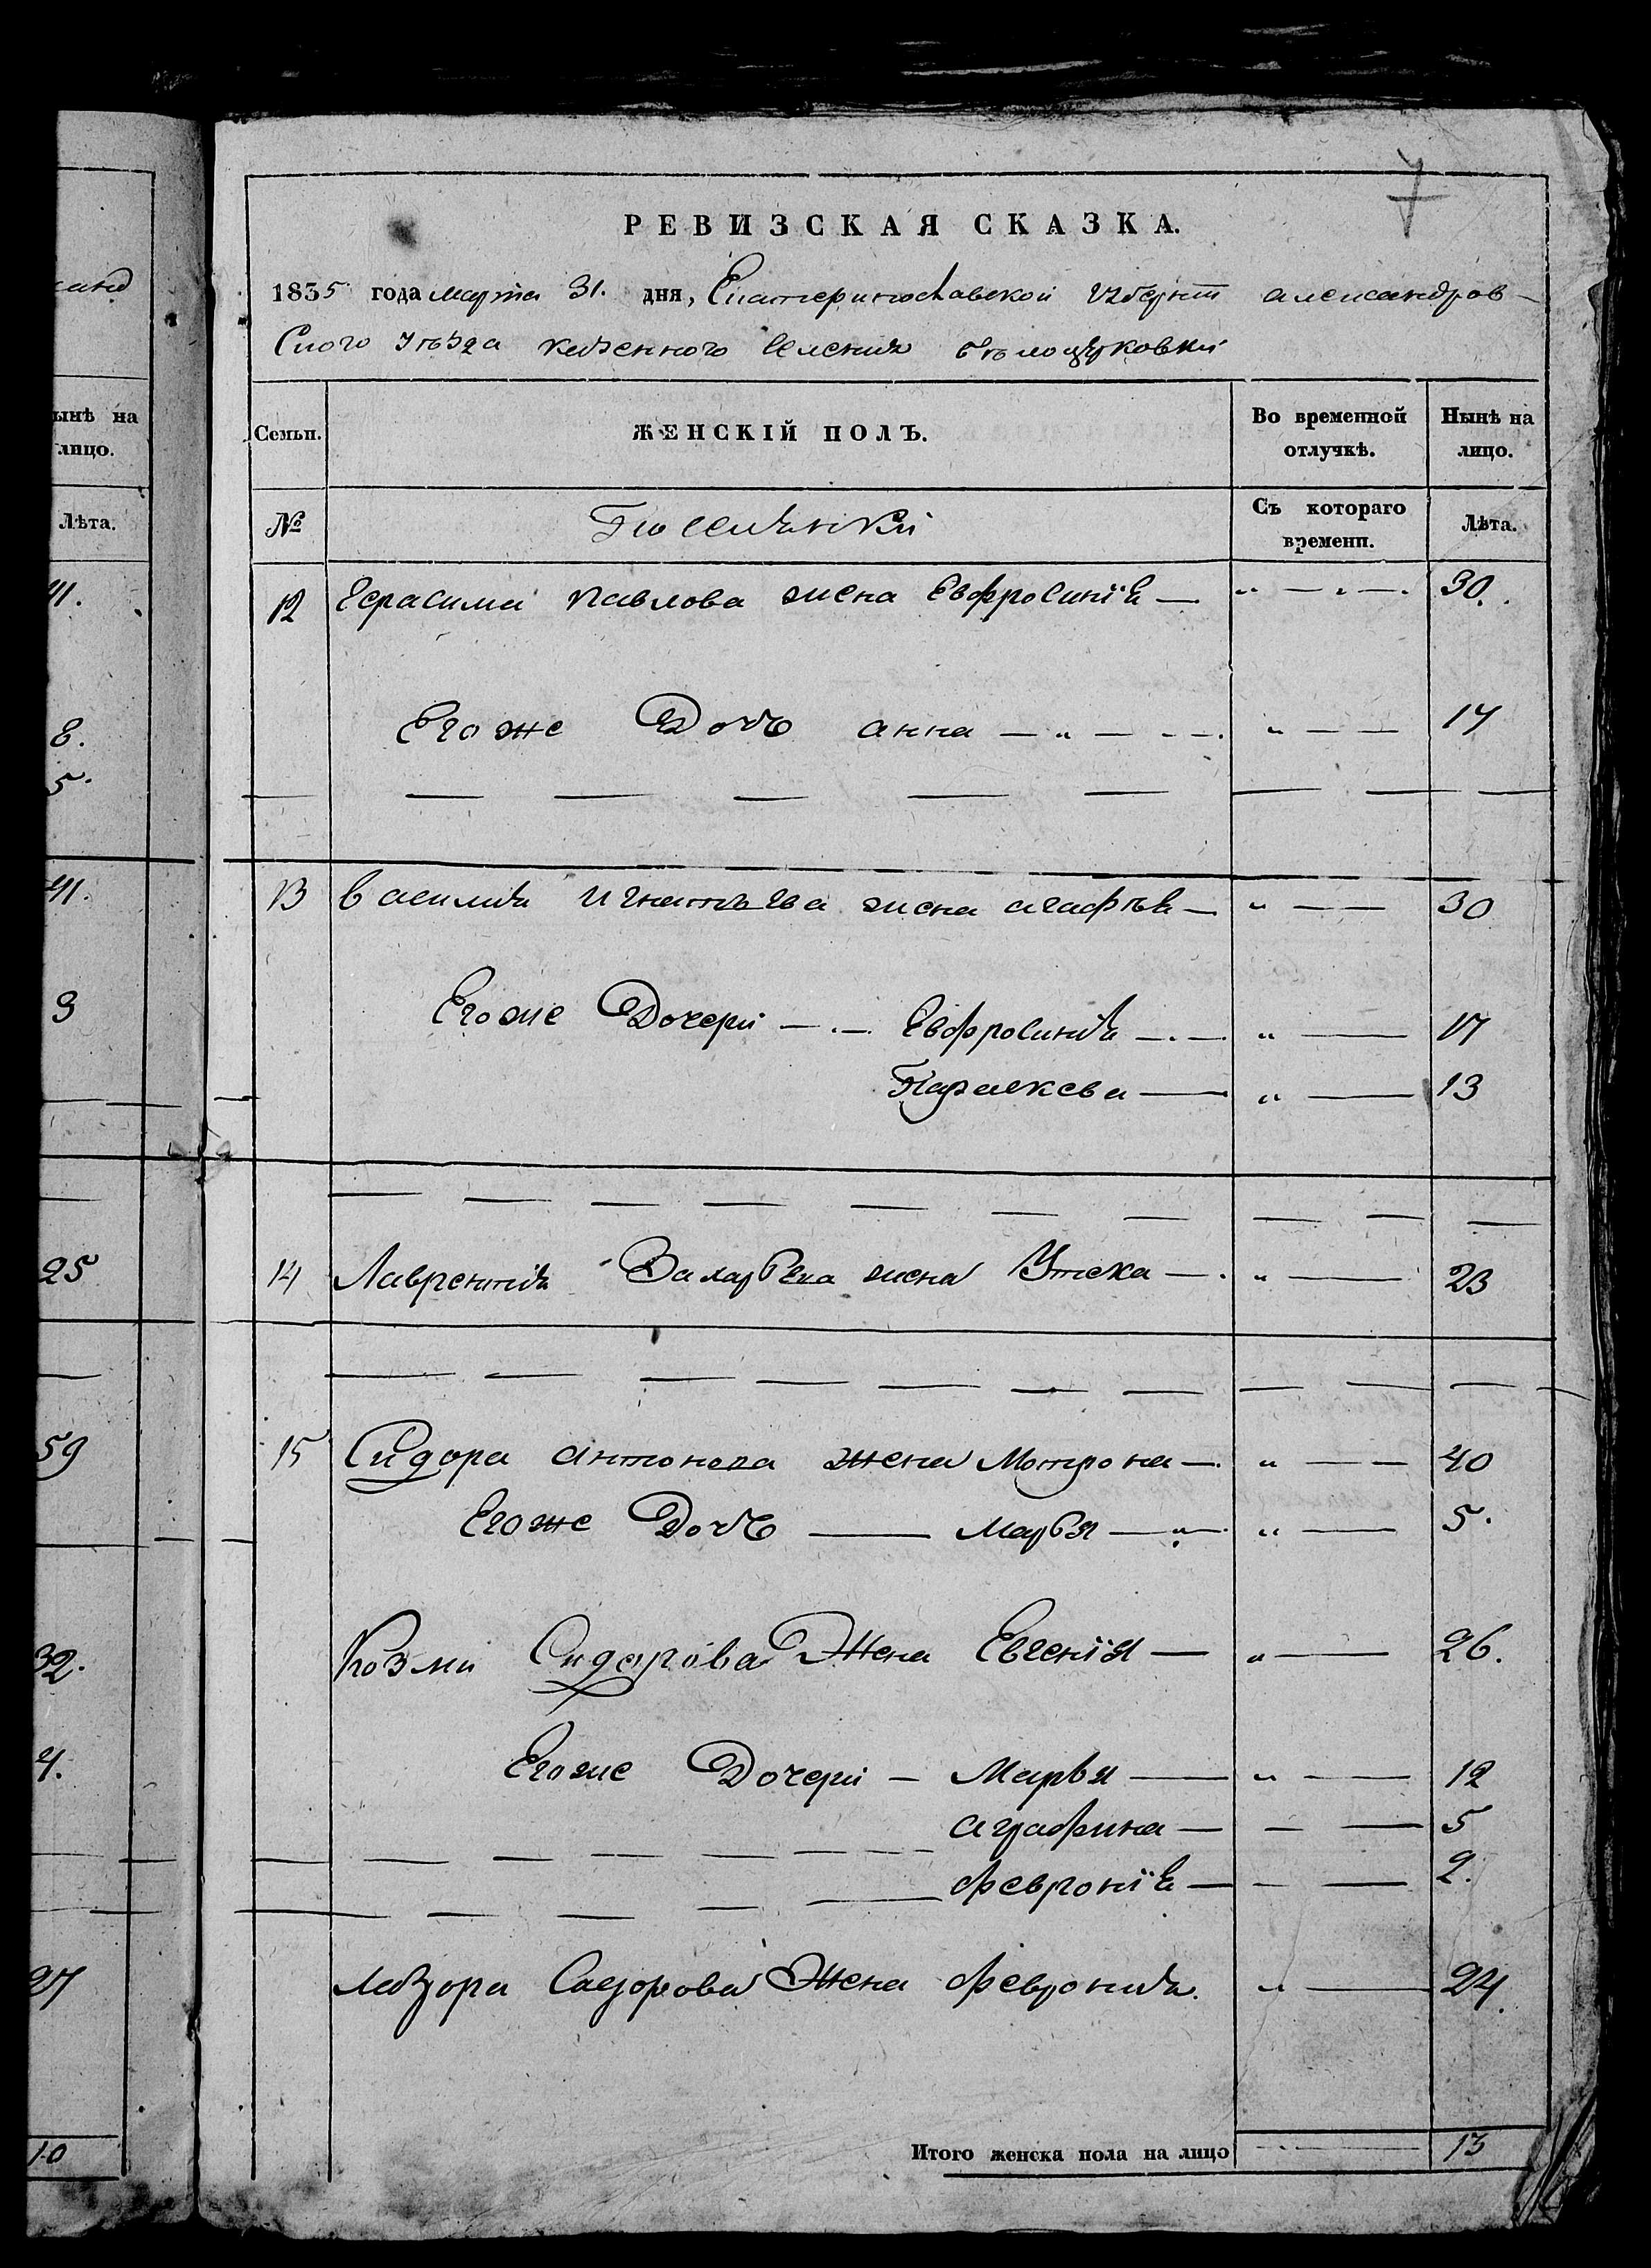 7
РЕВИЗСКАЯ СКАЗКА.
1835 года марта 31. дня, Екатеринославской Губерніи александров-
ского уѣзда казенного Селенія бѣлоцерковки
Семьи. ЖЕНСКІЙ ПОЛЪ. Во временной отлучкѣ. Нынѣ на лицо.
№ Поселянки Съ котораго времени. Лѣта.
12 Герасима Павлова жена Евфросинія — " — " — . 30.
Его же Дочь анна — " — - - . " — — 14
13 василія игнатьева жена агафія — " — — 30
Егоже Дочери — . — Евфросинія — . — " — 17
Параскева — " — 13
14 Лаврентія Захарьева жена — . " — 23
15 Сидора антонова жена Мотрона — . " — — 40
Егоже Дочь — марья — " — . " — 5.
Козми Сидорова Жена Евгенія — " — 26.
Егоже Дочери — Марья — " — 12
аграфина — — — 5
февронія — - — 2.
лазора Сидорова Жена февронія. " — 24.
Итого женска пола на лицо — 13
ынѣ на
лицо.
Лѣта.
41.
8.
5.
41.
3
25
59
32.
4.
27
10